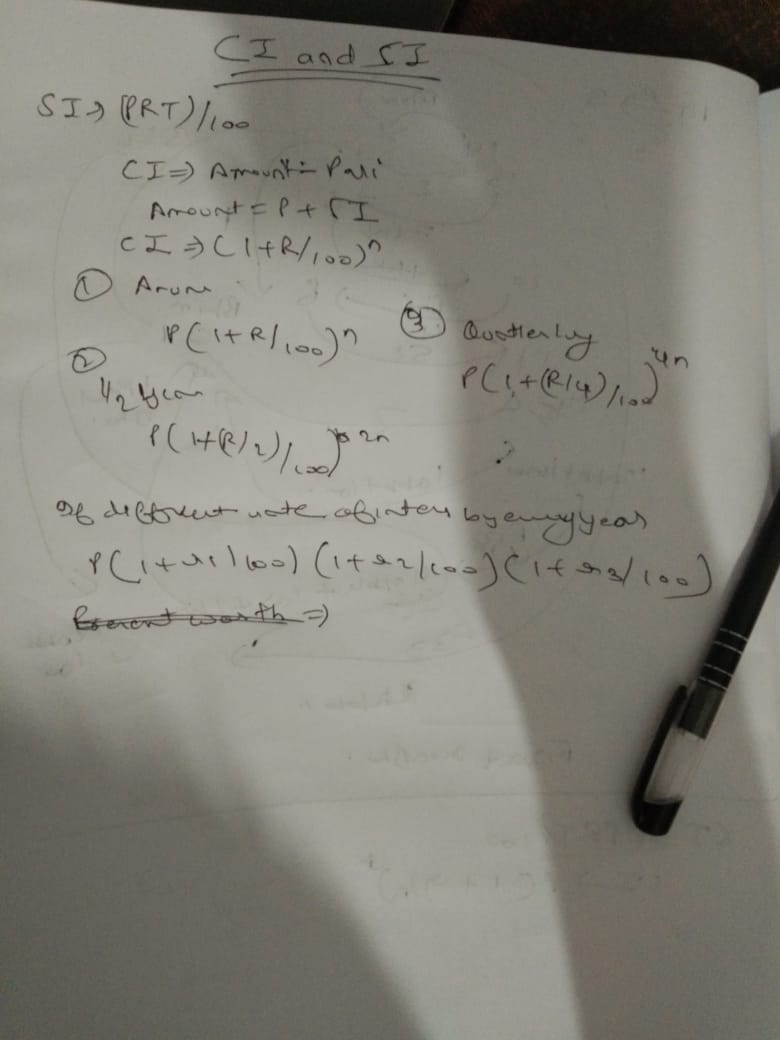 CI and SI
SI → (PRT)/100
CI ⇒ Amount -
Amount = P + SI
CI ⇒ (1+R/100)^n
①
P(1+R/100)^n
②
1/2 year
P(1+(R/2)/100)^2n
③ Quatlerly
P(1+(R/4)/100)^4n
If different rate of inters by every year
P(1+r1/100) (1+r2/100) (1+r3/100)